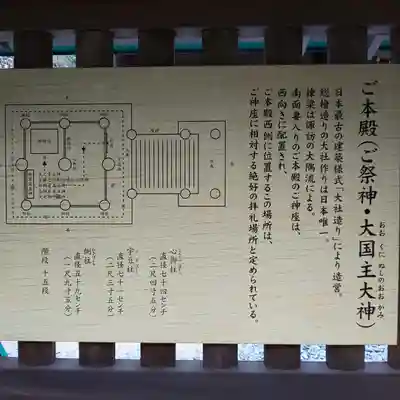 ご本殿(ご祭神・大国主大神)
おお くに ぬしのおおかみ
日本最古の建築様式「大社造り」により造営。
総檜造りの大社作りは日本唯一。
棟梁は諏訪の大隅流による。
南面妻入りのご本殿のご神座は、
西向きに配置され、
ご本殿西側に位置するこの場所は、
ご神座に相対する絶好の拝礼場所と定められている。
心御柱
直径七十四センチ
(二尺四寸五分)
宇豆柱
直径七十一センチ
(二尺三寸五分)
側柱
直径五十九センチ
(一尺九寸五分)
階段 十五段